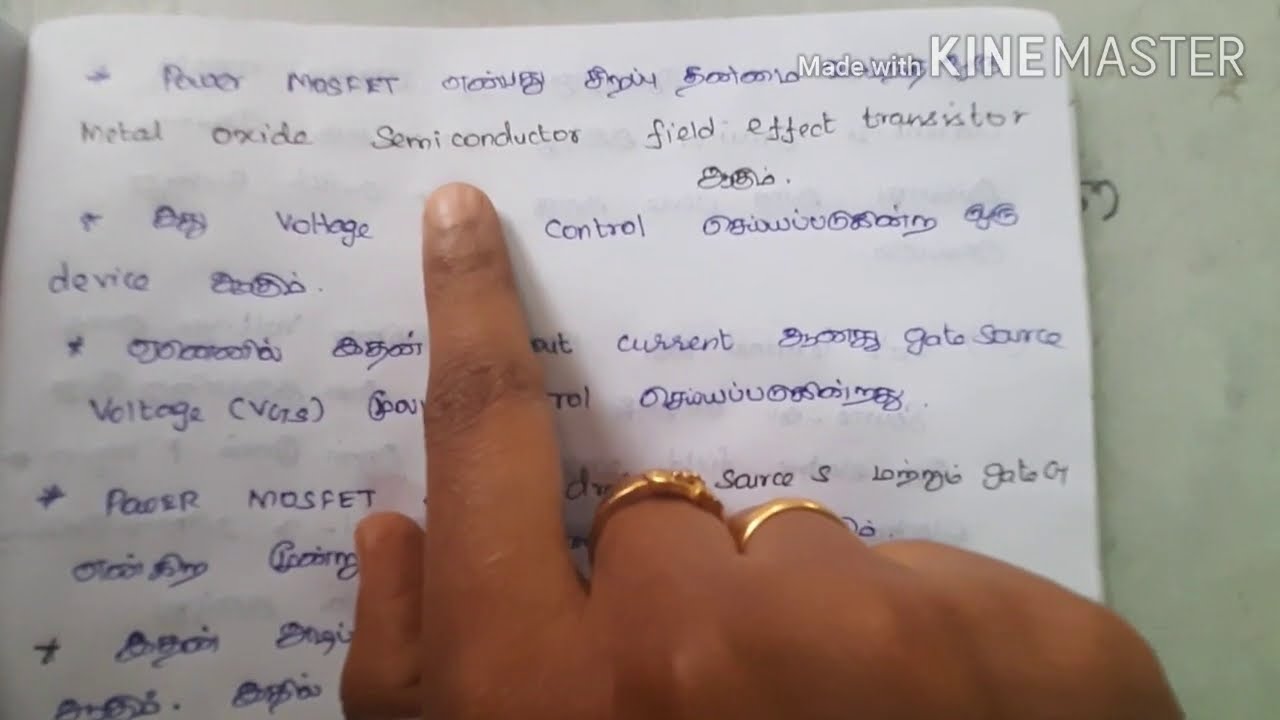 Made with KINEMASTER
* Power MOSFET என்பது சிறப்பு தன்மை
Metal oxide Semiconductor field effect transistor
ஆகும்.
* இது Voltage control செய்யப்படுகின்ற ஒரு
device ஆகும்.
* ஏனெனில் இதன் out current ஆனது gate source
Voltage (VGS) செய்யப்படுகின்றது.
* POWER MOSFET source S மற்றும் gate G
என்கிற மூன்று
* இதன்
ஆகும். இதில்